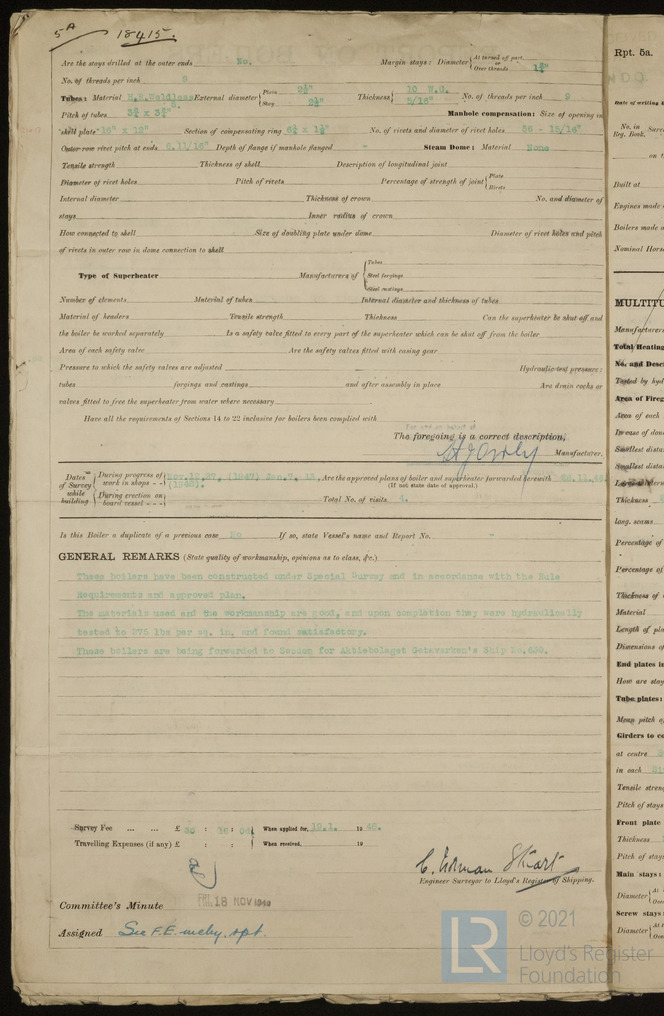 5A 18415.
Are the stays drilled at the outer ends No. Margin stays: Diameter { At turned off part, or Over threads
No. of threads per inch 9
Tubes: Material External diameter { Plain 2½" Stay 2½" Thickness { 10 W.G. 5/16" No. of threads per inch 9
Pitch of tubes Manhole compensation: Size of opening in
shell plate 16" x 12" Section of compensating ring No. of rivets and diameter of rivet holes 56 - 15/16"
Outer row rivet pitch at ends Depth of flange if manhole flanged - Steam Dome: Material None
Tensile strength Thickness of shell Description of longitudinal joint
Diameter of rivet holes Pitch of rivets Percentage of strength of joint { Plate Rivets
Internal diameter Thickness of crown No. and diameter of
stays Inner radius of crown
How connected to shell Size of doubling plate under dome Diameter of rivet holes and pitch
of rivets in outer row in dome connection to shell
Type of Superheater Manufacturers of { Tubes Steel forgings Steel castings
Number of elements Material of tubes Internal diameter and thickness of tubes
Material of headers Tensile strength Thickness Can the superheater be shut off and
the boiler be worked separately Is a safety valve fitted to every part of the superheater which can be shut off from the boiler
Area of each safety valve Are the safety valves fitted with easing gear
Pressure to which the safety valves are adjusted Hydraulic test pressure:
tubes forgings and castings and after assembly in place Are drain cocks or
valves fitted to free the superheater from water where necessary
Have all the requirements of Sections 14 to 22 inclusive for boilers been complied with
For and on behalf of
The foregoing is a correct description,
Manufacturer.
Dates of Survey while building { During progress of work in shops - - (1947) Jan. (1948). Are the approved plans of boiler and superheater forwarded herewith
(If not state date of approval.)
During erection on board vessel - - - Total No. of visits 4.
Is this Boiler a duplicate of a previous case No If so, state Vessel's name and Report No.
GENERAL REMARKS (State quality of workmanship, opinions as to class, &c.)
These boilers have been constructed under Special Survey and in accordance with the Rule
Requirements and approved plan.
The materials used and the workmanship are good, and upon completion they were hydraulically
tested to 275 lbs per sq. in. and found satisfactory.
These boilers are being forwarded to Sweden for Aktiebolaget Gotaverken's Ship No.630.
Survey Fee ... ... £ : : When applied for, 19 48.
Travelling Expenses (if any) £ : : When received, 19
Engineer Surveyor to Lloyd's Register of Shipping.
Committee's Minute FRI. 18 NOV 1949
Assigned See F.E. mchy. rpt.
Rpt. 5a.
Date of writing
No. in Reg. Book.
on t
Built at
Engines made
Boilers made
Nominal Hors
MULTITU
Manufacturers
Total Heating
No. and Descr
Tested by hyd
Area of Fireg
Area of each
Increase of dia
Smallest dista
Smallest dista
Thickness
long. seams
Percentage of
Percentage of
Thickness of
Material
Length of pla
Dimensions of
End plates in
How are stay
Tube plates:
Mean pitch of
Girders to ce
at centre
in each
Tensile stren
Pitch of stays
Front plate
Thickness
Pitch of stays
Main stays:
Diameter { At Ove
Screw stays
Diameter { At Ove
LR © 2021
Lloyd's Register
Foundation